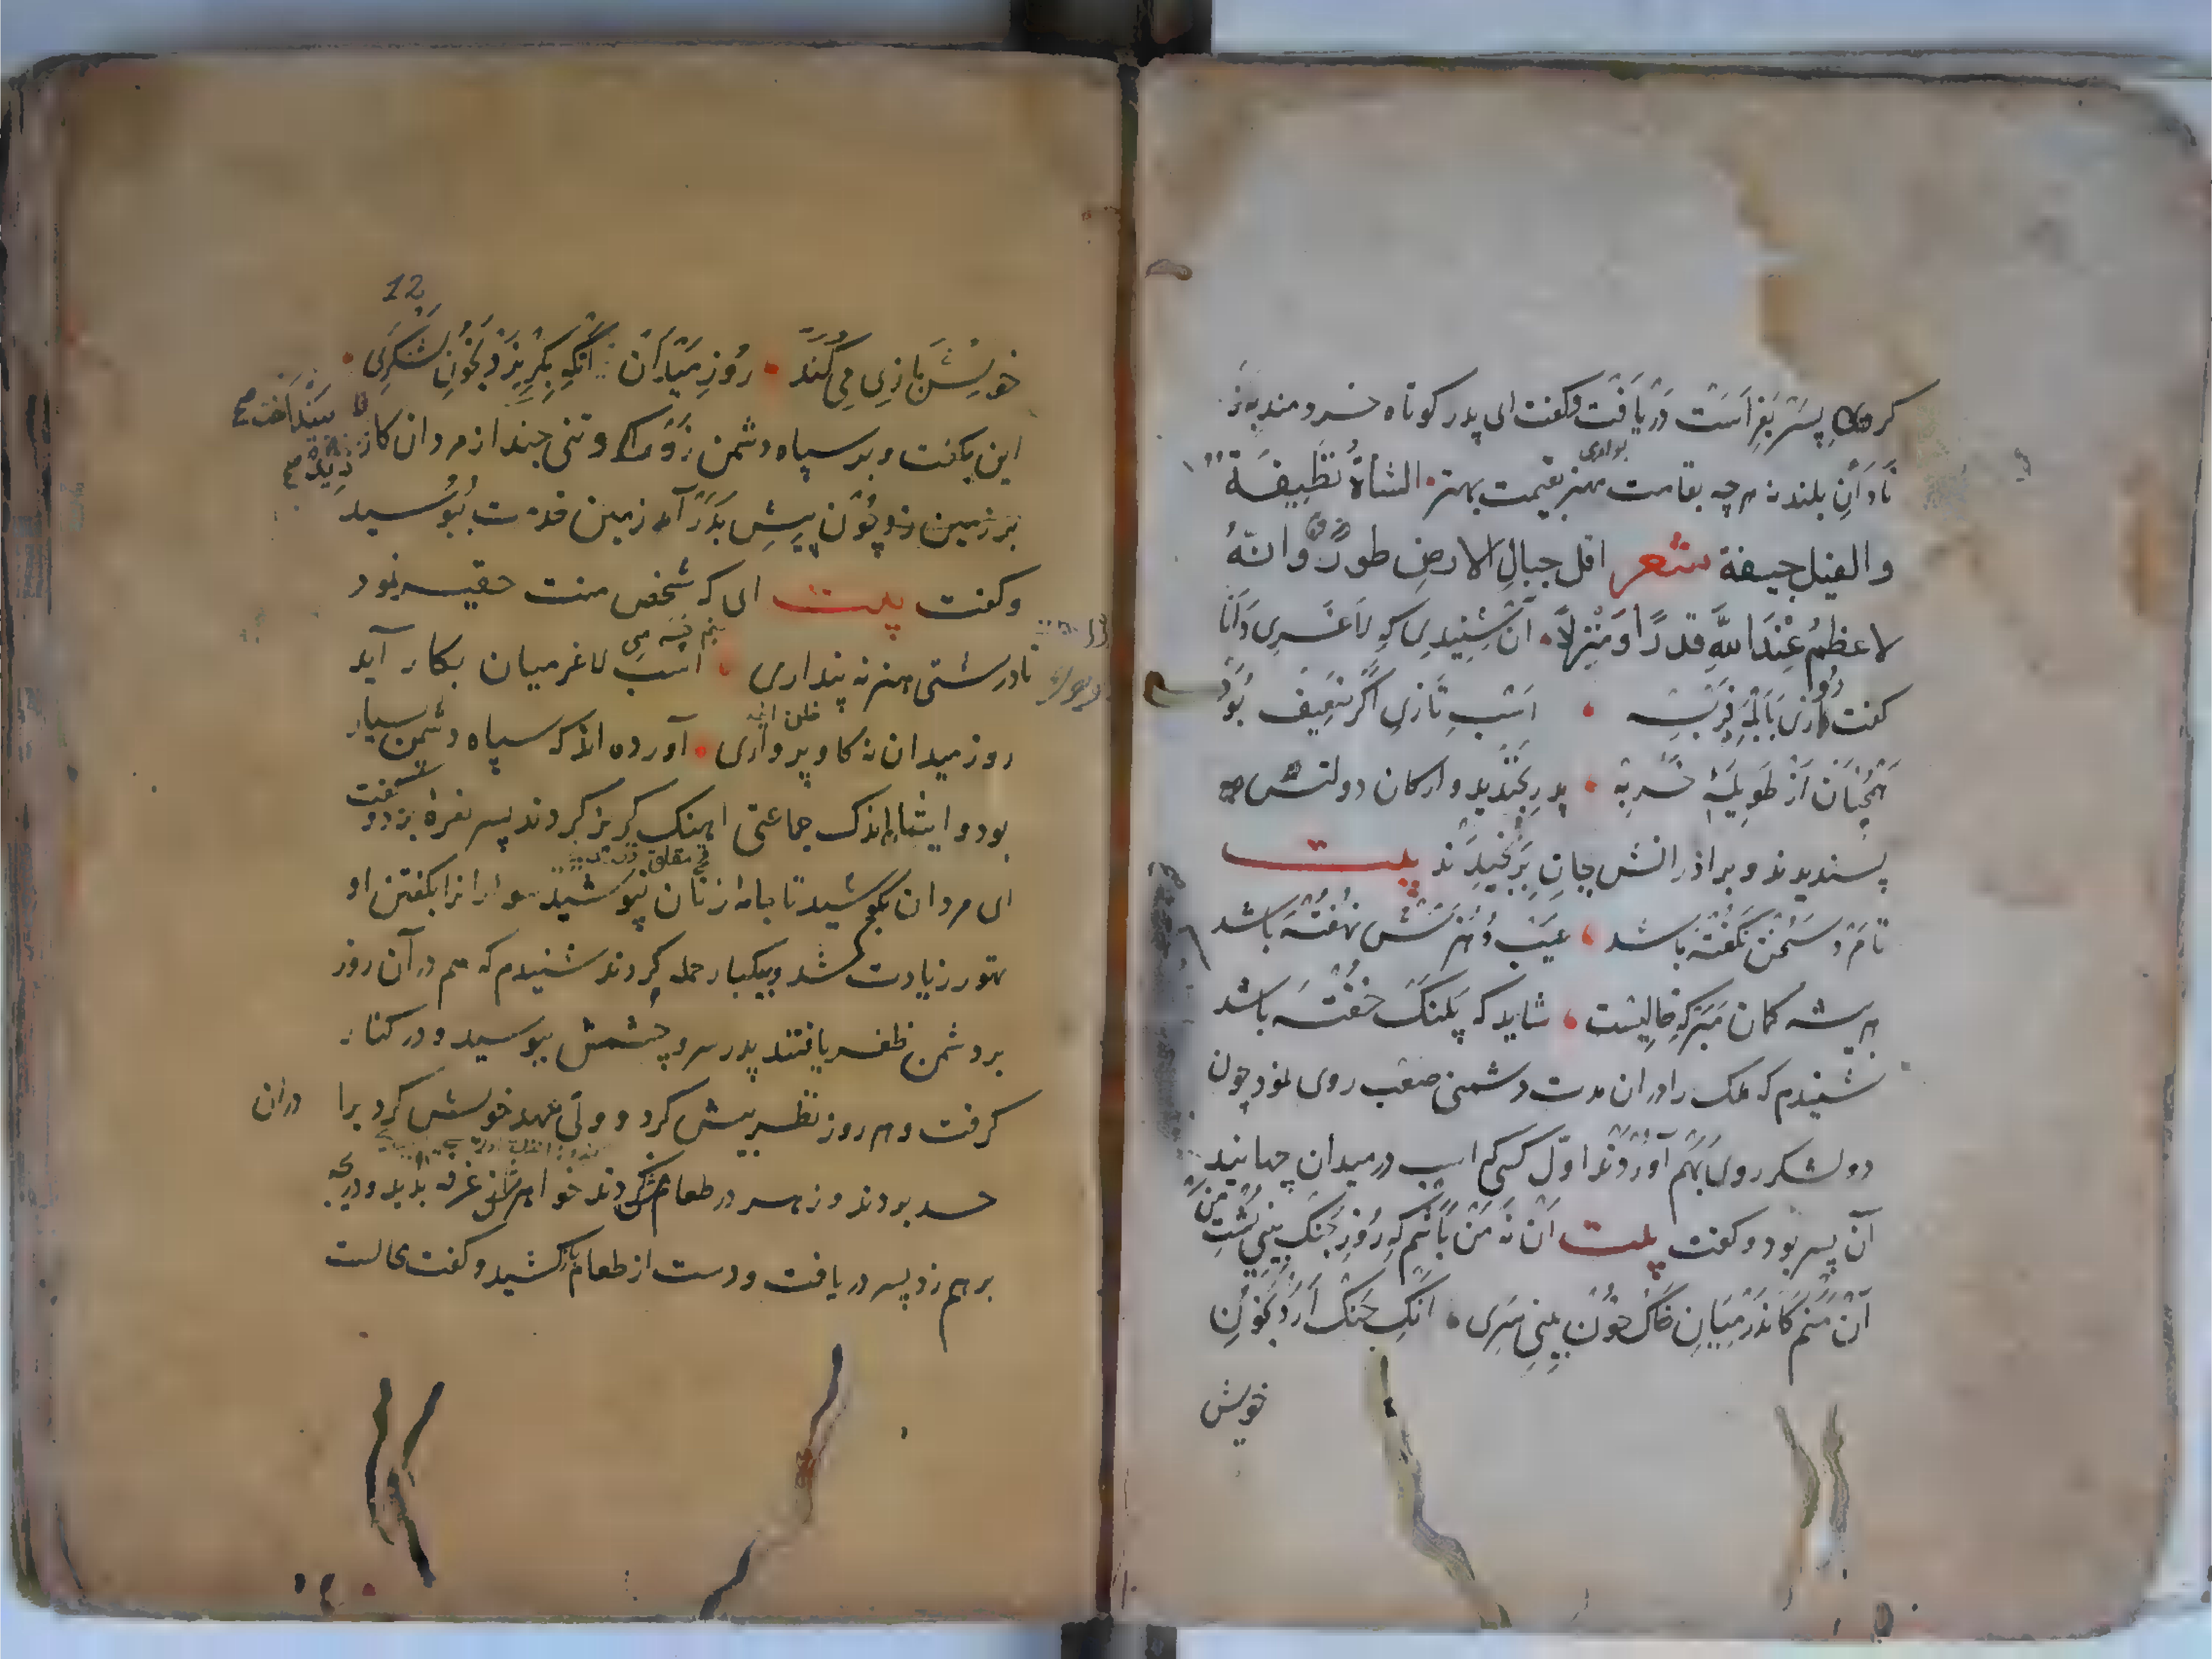 کرد پسر بفراست دریافت و کفت ای پدر کوتاه خردمند به ز
نادان بلند نه هرچه بقامت مهتر بقیمت بهتر الشاة نظیفة
والفیل جیفة شعر اقل جبال الارض طور وانه
لاعظم عند الله قدرا و منزلا آن شنیدی که لاغری دانا
کفت روزی بابله فربه اسب تازی اگر ضعیف بود
همچنان از طویلۀ خر به پدر بخندید و ارکان دولتش
پسندیدند و براذرانش بجان برنجیدند بیت
تا مرد سخن نکفته باشد عیب و هنرش نهفته باشد
هر بیشه کمان مبر که خالیست شاید که پلنک خفته باشد
شنیدم که ملک را دران مدت دشمنی صعب روی نمود چون
دو لشکر روی بهم آوردند اول کسی که اسب در میدان جهانید
آن پسر بود و کفت بیت آن نه من باشم که روز جنک بینی پشت من
آن منم کاندر میان خاک خون بینی سری انک جنک آرد بخون
خویش
12
خویش بازی می کند روز میدان انکه بکریزد بخون لشکری
این بکفت و بر سپاه دشمن زد و تنی چند از مردان کار
بینداخت
بر زمین زد چون پیش پدر آمد زمین خدمت ببوسید
و کفت بیت ای که شخص منت حقیر نمود
تا درشتی هنر نه پنداری اسب لاغر میان بکار آید
روز میدان نه کاو پرواری آورده اند که سپاه دشمن بسیار
بود و ایشان اندک جماعتی اهنک کریز کردند پسر نعره بزد و کفت
ای مردان بکوشید تا جامه زنان نپوشید سوارانرا بکفتن او
تهور زیادت شد و بیکبار حمله کردند شنیدم که هم در آن روز
بر دشمن ظفر یافتند پدر سر و چشمش ببوسید و در کنار
کرفت و هر روز نظر بیش کرد و ولی عهد خویش کرد برا دران
حسد بردند و زهر در طعامش کردند خواهرش از غرفه بدید و دریچه
بر هم زد پسر دریافت و دست از طعام باز کشید و کفت محالست